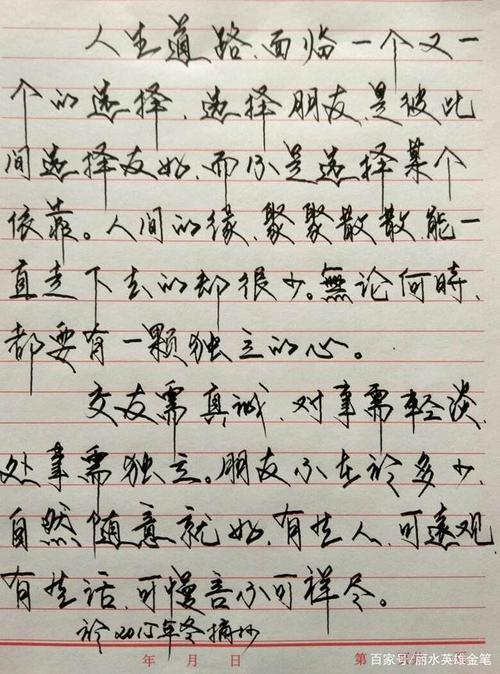 人生道路,面临一个又一
个的选择,选择朋友,是彼此
间选择友好,而不是选择某个
依靠。人间的缘,聚聚散散,能一
直走下去的却很少。無论何時,
都要有一颗独立的心。
交友需真诚,对事需轻淡,
处事需独立。朋友不在於多少,
自然随意就好,有些人,可远观,
有些话,可慢言不可详尽。
於2015年冬摘抄
年 月 日 第
百家号/丽水英雄金笔